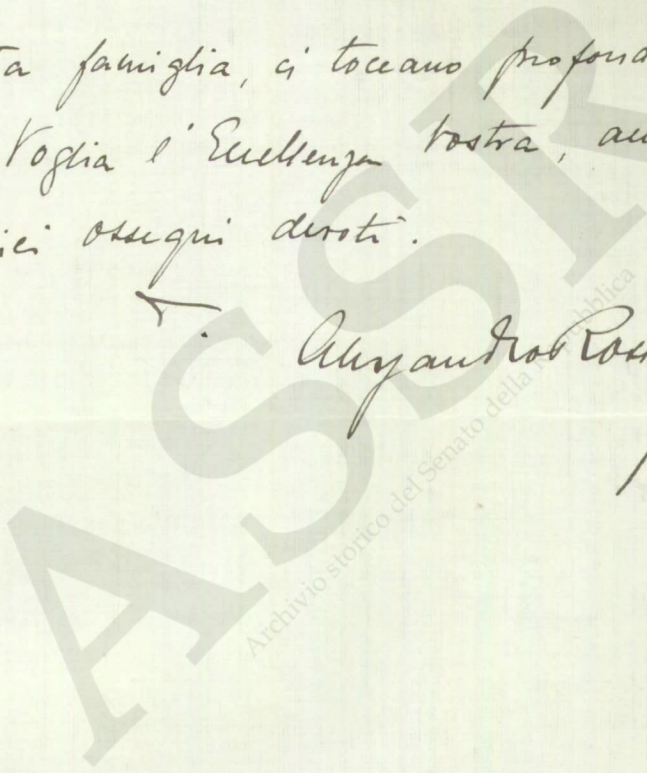 ta famiglia, ci toccano profond
Voglia l'Eccellenza Vostra, au
ici ossequi devoti.
Alessandro Ross
ASSR
Archivio storico del Senato della Repubblica